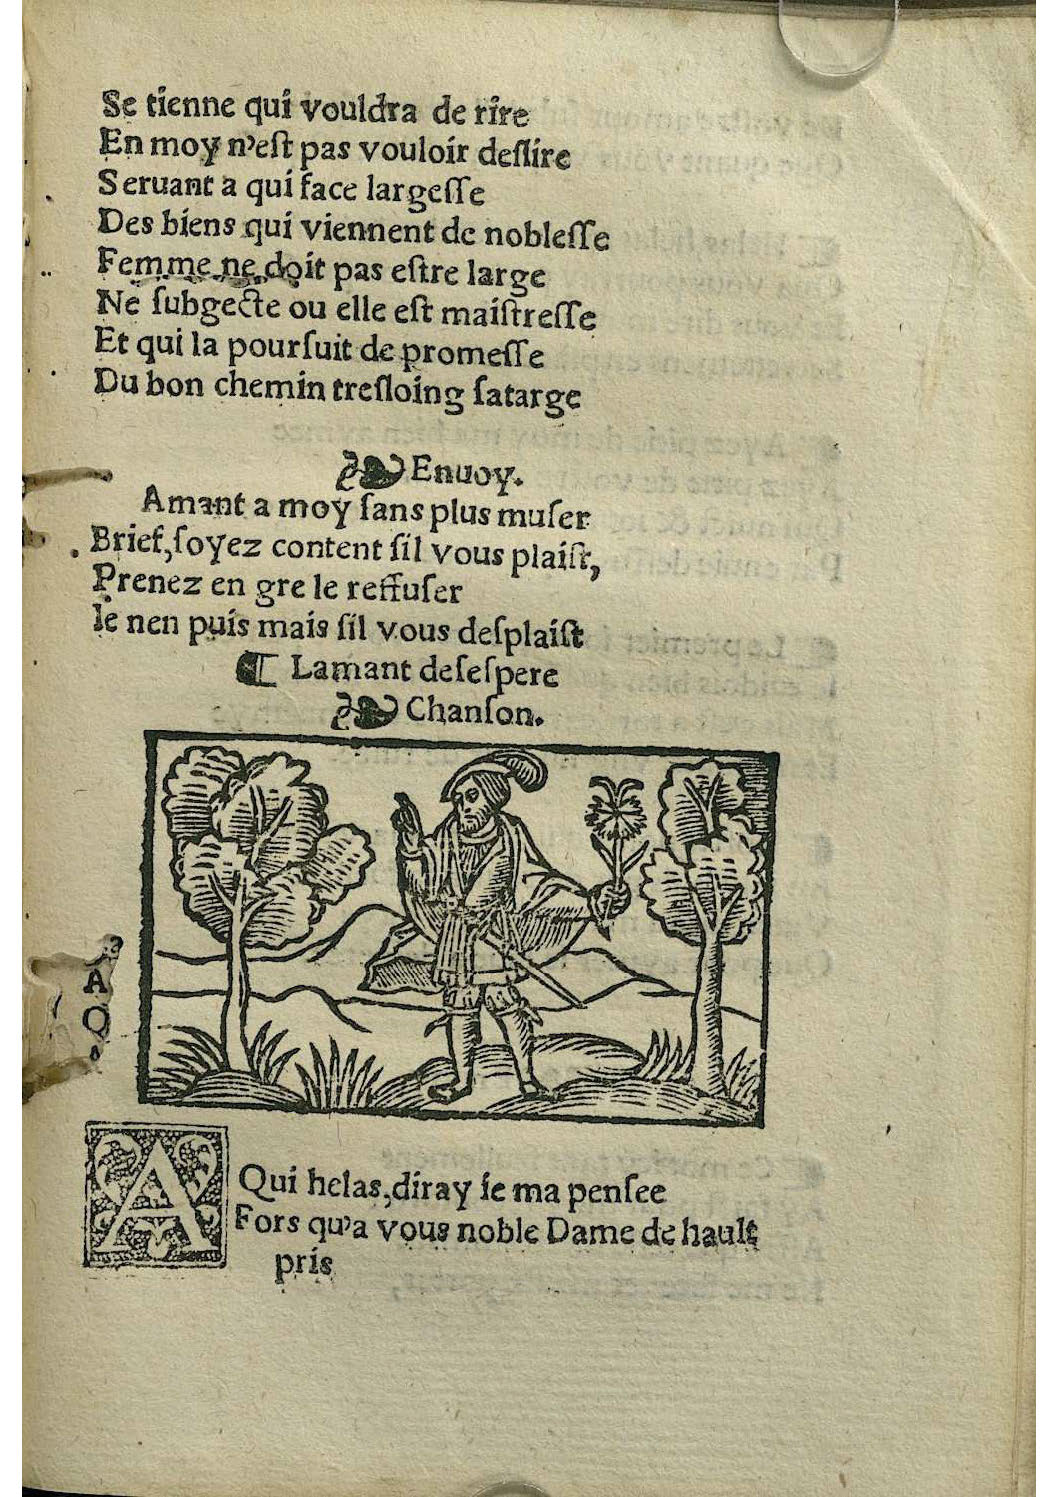 Se tienne qui vouldra de rire
En moy n'eſt pas vouloir deſſire
Seruant a qui face largeſſe
Des biens qui viennent de nobleſſe
Femme ne doit pas eſtre large
Ne ſubgecte ou elle eſt maiſtreſſe
Et qui la pourſuit de promeſſe
Du bon chemin treſloing ſatarge
❧ Enuoy.
Amant a moy ſans plus muſer
Brief, ſoyez content ſil vous plaiſt,
Prenez en gre le reffuſer
Ie nen puis mais ſil vous deſplaiſt
¶ Lamant deſeſpere
❧ Chanſon.
A
Q
A Qui helas, diray ie ma penſee
Fors qu'a vous noble Dame de hault
pris